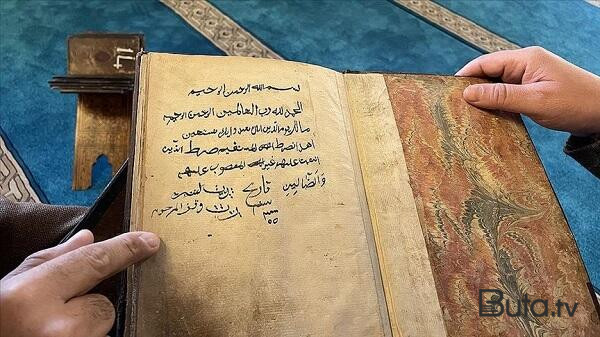 بسم الله الرحمن الرحيم
الحمد لله رب العالمين الرحمن الرحيم
مالك يوم الدين اياك نعبد واياك نستعين
اهدنا الصراط المستقيم صراط الذين
انعمت عليهم غير المغضوب عليهم
ولا الضالين تاريخ
سنه
14
Buta.tv